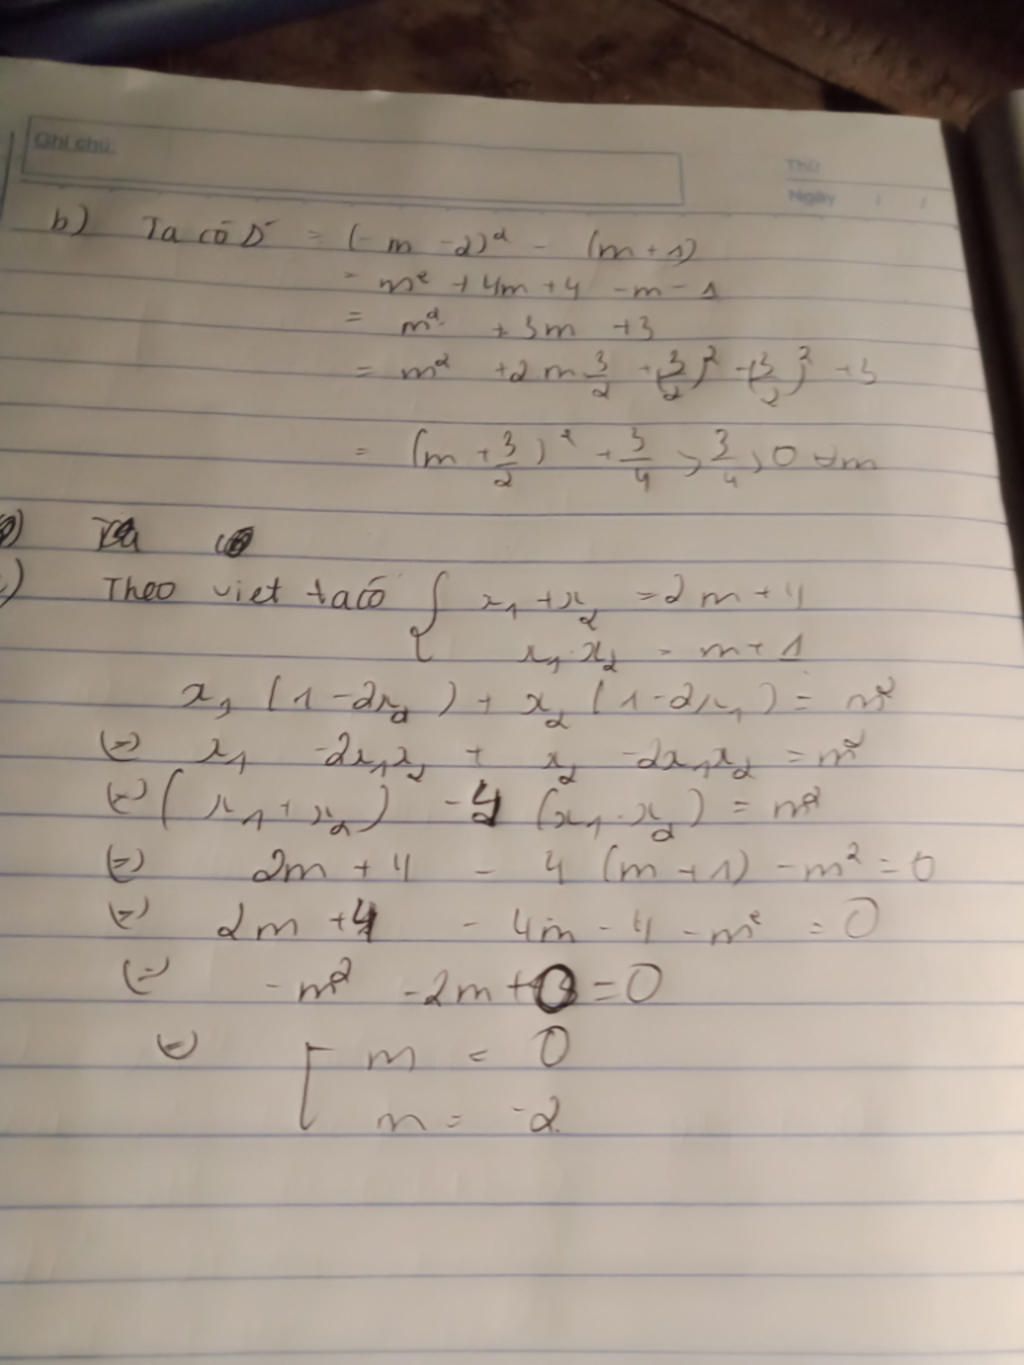 Ghi chú:
Thứ
Ngày / /
b) Ta có Δ' = (-m -2)² - (m+1)
= m² + 4m + 4 - m - 1
= m² + 3m + 3
= m² + 2m 3/2 + (3/2)² - (3/2)² + 3
= (m + 3/2)² + 3/4 ≥ 3/4 > 0 ∀m
Theo viet ta có { x₁ + x₂ = 2m + 4
x₁.x₂ = m + 1
x₁ (1 - 2x₂) + x₂ (1 - 2x₁) = m²
(=) x₁ - 2x₁x₂ + x₂ - 2x₁x₂ = m²
(=) (x₁ + x₂) - 4 (x₁.x₂) = m²
(=) 2m + 4 - 4 (m + 1) - m² = 0
(=) 2m + 4 - 4m - 4 - m² = 0
(=) -m² - 2m + 0 = 0
(=) [ m = 0
m = -2